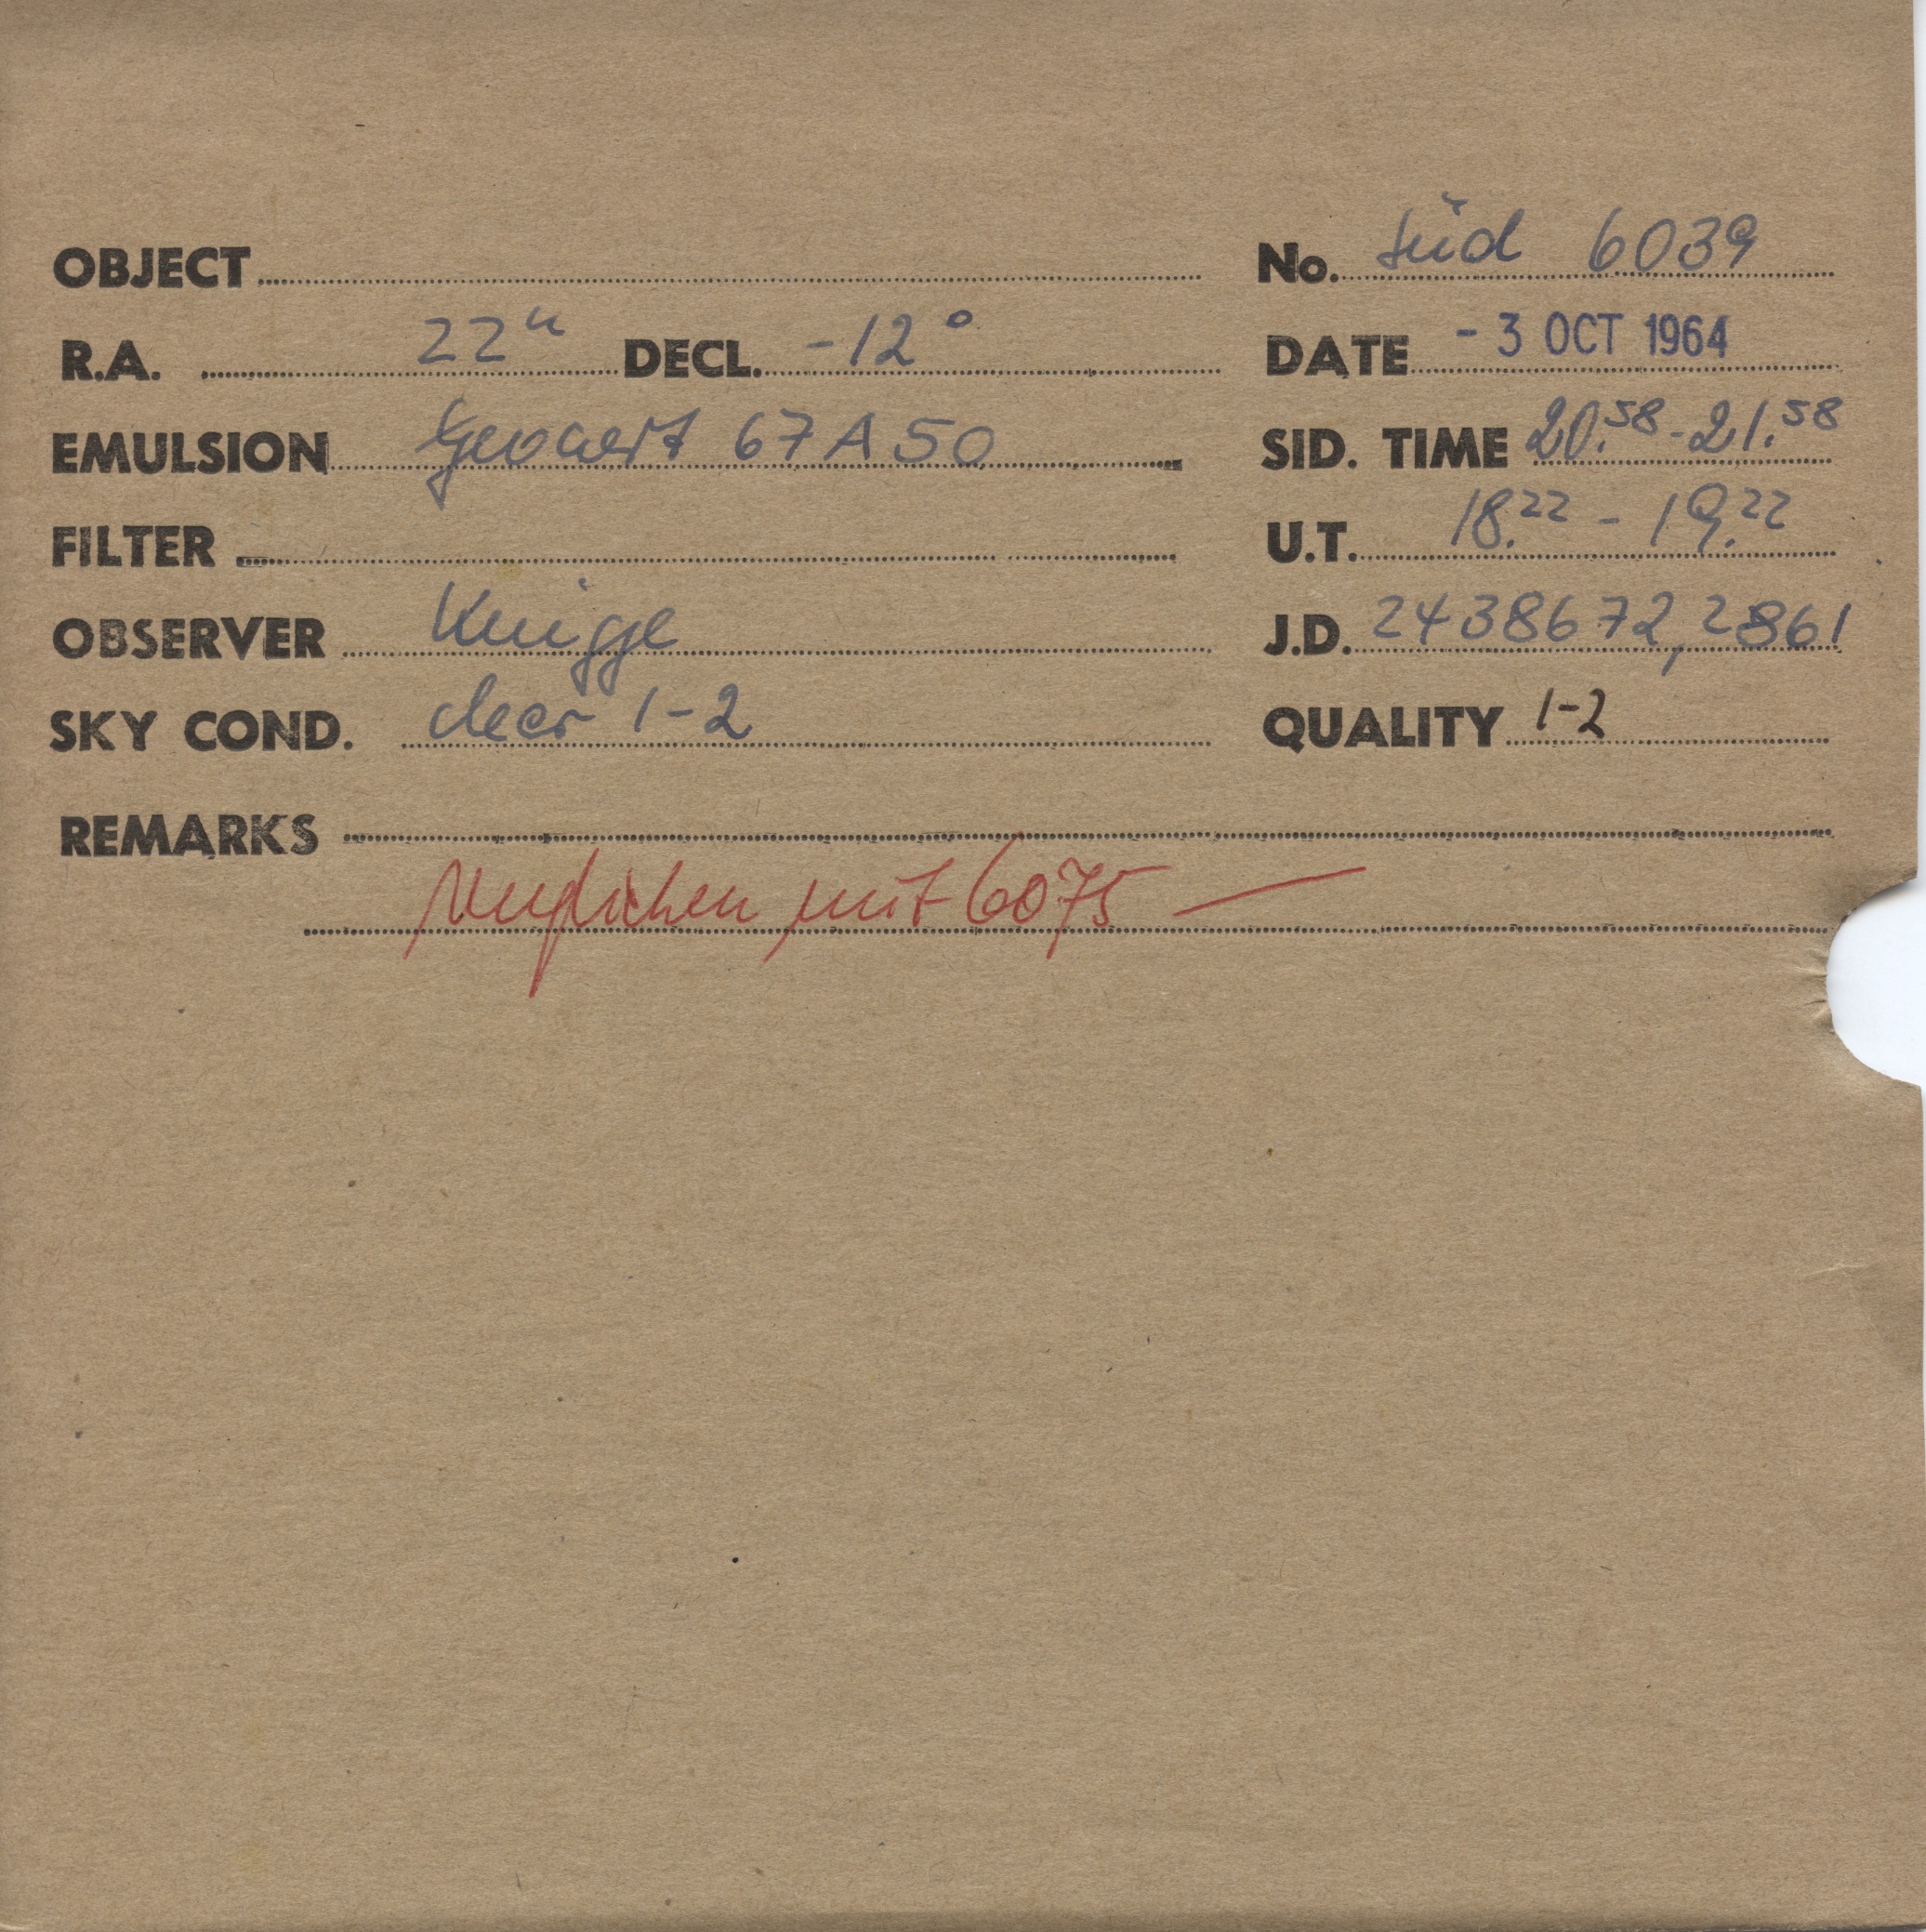 OBJECT No. Süd 6039
R.A. 22ʰ DECL. -12° DATE - 3 OCT 1964
EMULSION Gevaert 67A50 SID. TIME 20.58 - 21.58
FILTER U.T. 18.22 - 19.22
OBSERVER Knigge J.D. 2438672,2861
SKY COND. clear 1-2 QUALITY 1-2
REMARKS
Verglichen mit 6075 —